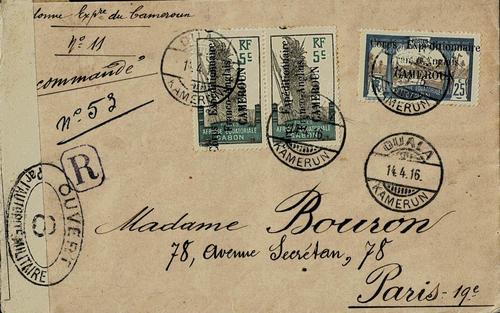 lonne Expre du Cameroun
No 11
commandé
no 53
R
OUVERT
Par l'AUTORITÉ MILITAIRE
8
KAMERUN
RF
5c
Corps Expéditionnaire
Franco-Anglais
CAMEROUN
AFRIQUE ÉQUATORIALE
GABON
RF
5c
Corps Expéditionnaire
Franco-Anglais
CAMEROUN
AFRIQUE ÉQUATORIALE
GABON
KAMERUN
Corps Expéditionnaire
Franco-Anglais
CAMEROUN
25
KAMERUN
DUALA
14.4.16.
KAMERUN
Madame Bouron
78, Avenue Secrétan, 78
Paris - 19e